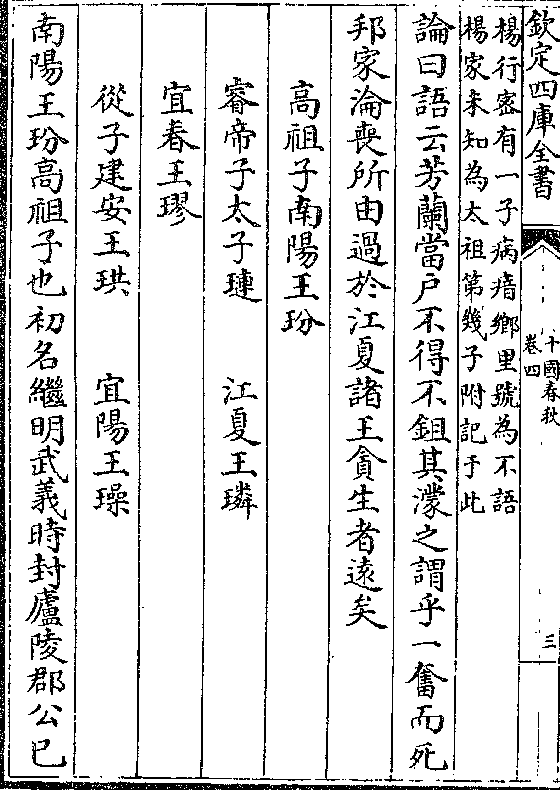 欽定四庫全書
十國春秋
卷四
三
楊行密有一子病瘖鄉里號為不語
楊家未知為太祖第幾子附記于此
論曰語云芳蘭當户不得不鉏其濛之謂乎一奮而死
邦家淪喪所由過於江夏諸王貪生者遠矣
高祖子南陽王玢
睿帝子太子璉　江夏王璘
宜春王璆
從子建安王珙　宜陽王璪
南陽王玢高祖子也初名繼明武義時封廬陵郡公已